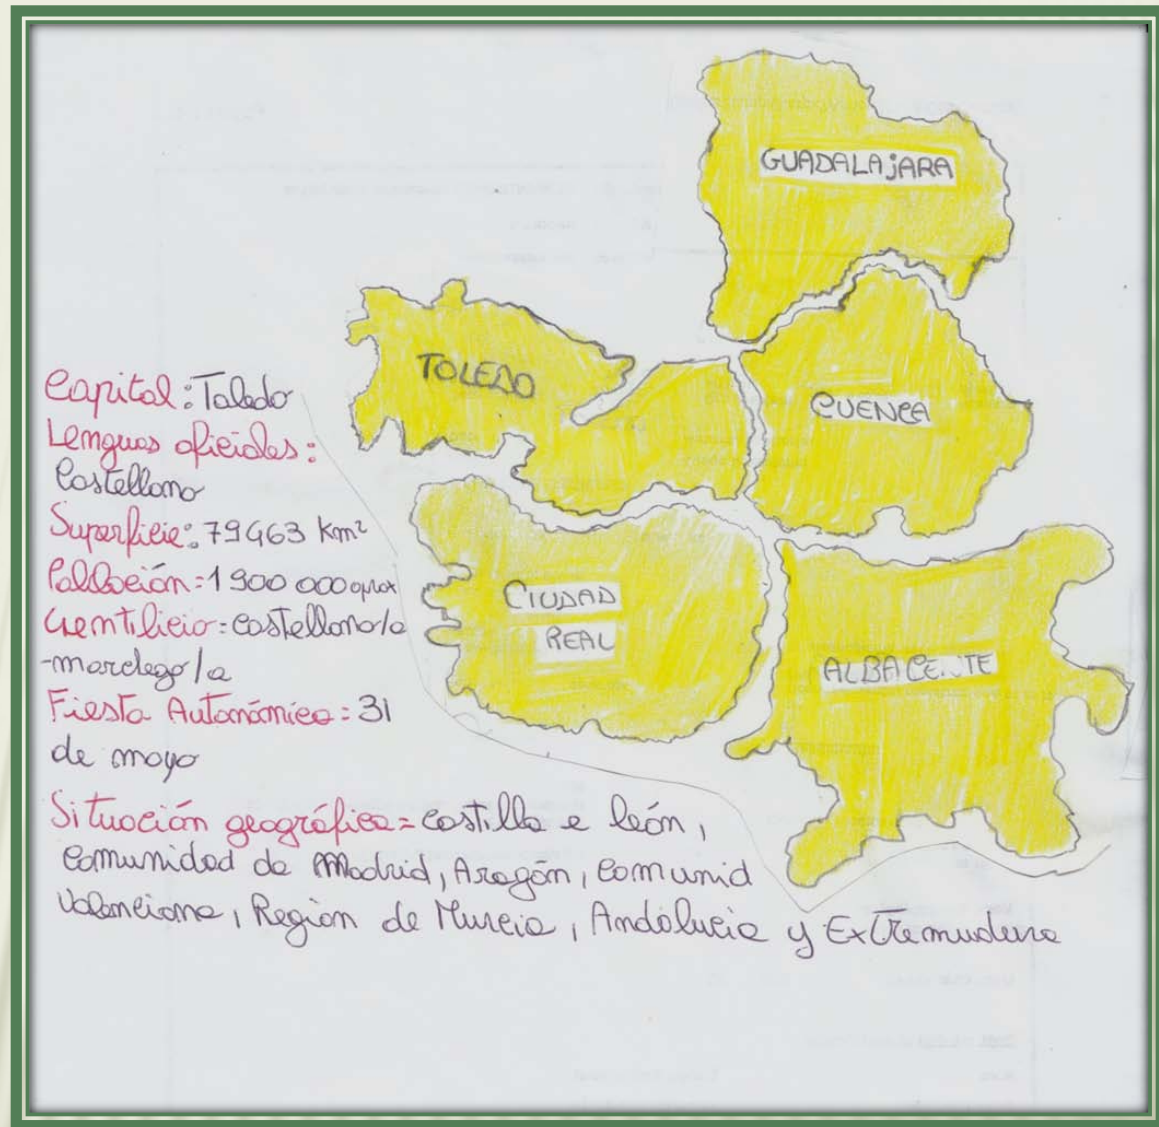 GUADALAJARA
TOLEDO
CUENCA
CIUDAD
REAL
ALBACENTE
Capital: Toledo
Lenguas oficiales:
Castellano
Superficie: 79463 km²
Población = 1 900 000 aprox
Gentilicio = castellano/a
-manchego/a
Fiesta Autonómica = 31
de mayo
Situación geográfica = castilla e león,
Comunidad de Madrid, Aragón, Comunid
Valenciana, Región de Murcia, Andalucía y Extremudura